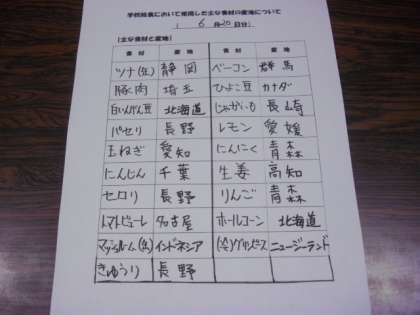 学校給食において使用した主な食材の産地について
( 6 月 20 日分)
[主な食材と産地]
食材 産地 食材 産地
ツナ(缶) 静岡 ベーコン 群馬
豚肉 埼玉 ひよこ豆 カナダ
白いんげん豆 北海道 じゃがいも 長崎
パセリ 長野 レモン 愛媛
玉ねぎ 愛知 にんにく 青森
にんじん 千葉 生姜 高知
セロリ 長野 りんご 青森
トマトピューレ 名古屋 ホールコーン 北海道
マッシュルーム(缶) インドネシア (冷)グリンピース ニュージーランド
きゅうり 長野